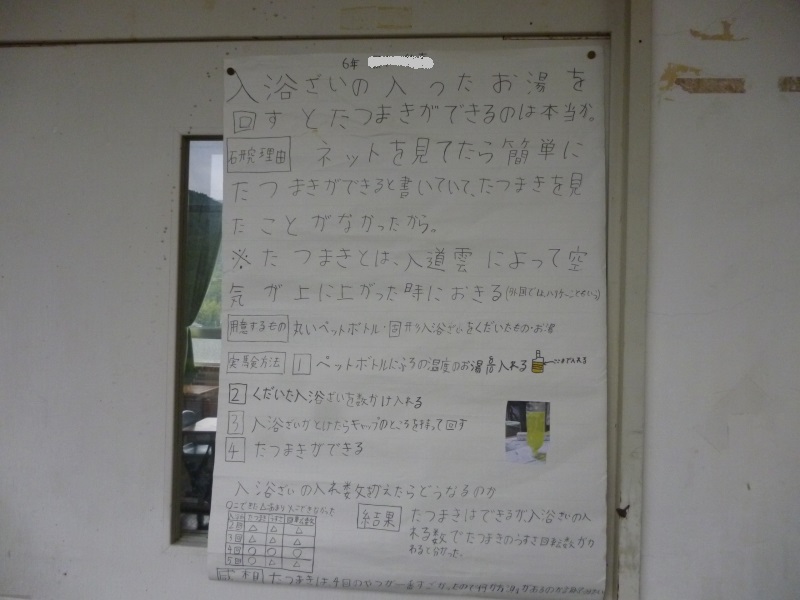 6年
入浴ざいの入ったお湯を
回すとたつまきができるのは本当か。
研究理由 ネットを見てたら簡単に
たつまきができると書いていて、たつまきを見
たことがなかったから。
※たつまきとは、入道雲によって空
気が上に上がった時におきる
用意するもの 丸いペットボトル・入浴ざいをくだいたもの・お湯
実験方法 1 ペットボトルにふろの温度のお湯入れる ここまで入れる
2 くだいた入浴ざいを数かけ入れる
3 入浴ざいがとけたらキャップのところを持って回す
4 たつまきができる
入浴ざいの入れ数変えたらどうなるのか
結果 たつまきはできるが、入浴ざいの入
れる数でたつまきのうすさ回転数がか
わると分かった。
2回 △ △ △
3回 △ △ △
4回 ○ ○ ○
5回 ○ △ △
感想 たつまきは4回のやつが一番すごかった